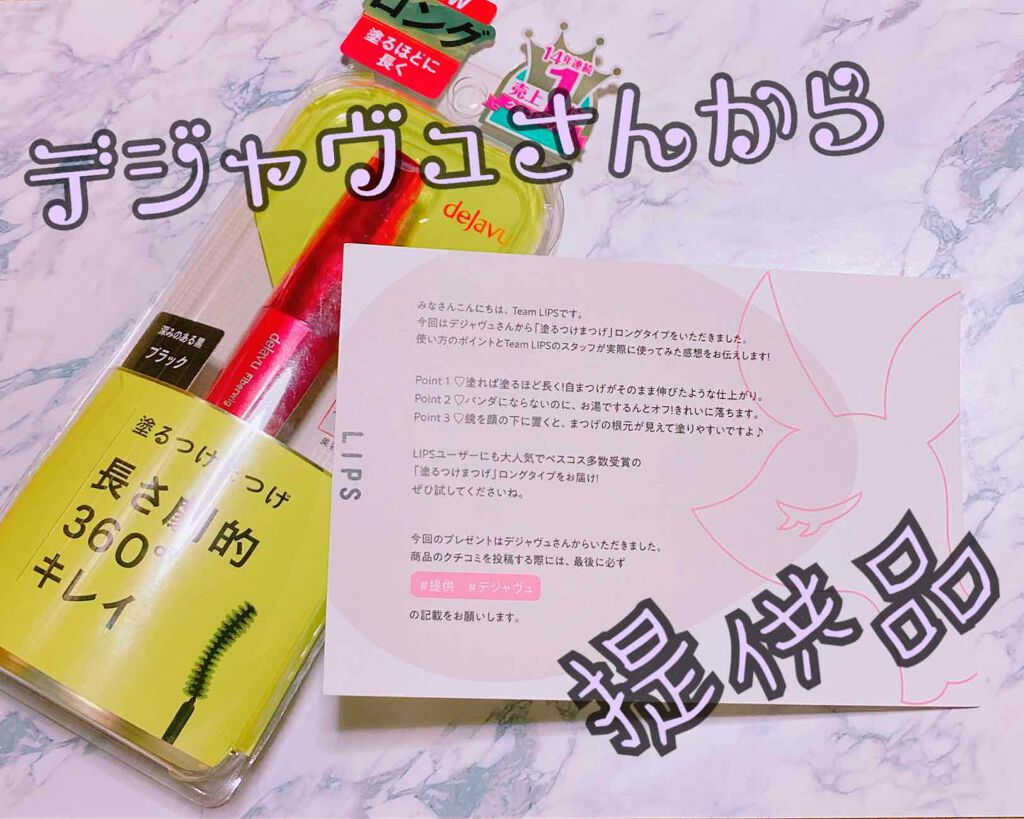 ロング
塗るほどに
長く
14年連続
売上
1
デジャヴュさんから
dejavu
深みのある黒
ブラック
dejavu Fiberwig
塗るつけまつげ
長さ劇的
360°
キレイ
LIPS
みなさんこんにちは、Team LIPSです。
今回はデジャヴュさんから「塗るつけまつげ」ロングタイプをいただきました。
使い方のポイントとTeam LIPSのスタッフが実際に使ってみた感想をお伝えします!
Point 1 ♡塗れば塗るほど長く!自まつげがそのまま伸びたような仕上がり。
Point 2 ♡パンダにならないのに、お湯でするんとオフ!きれいに落ちます。
Point 3 ♡鏡を顔の下に置くと、まつげの根元が見えて塗りやすいですよ♪
LIPSユーザーにも大人気でベスコス多数受賞の
「塗るつけまつげ」ロングタイプをお届け!
ぜひ試してくださいね。
今回のプレゼントはデジャヴュさんからいただきました。
商品のクチコミを投稿する際には、最後に必ず
#提供 #デジャヴュ
の記載をお願いします。
提供品